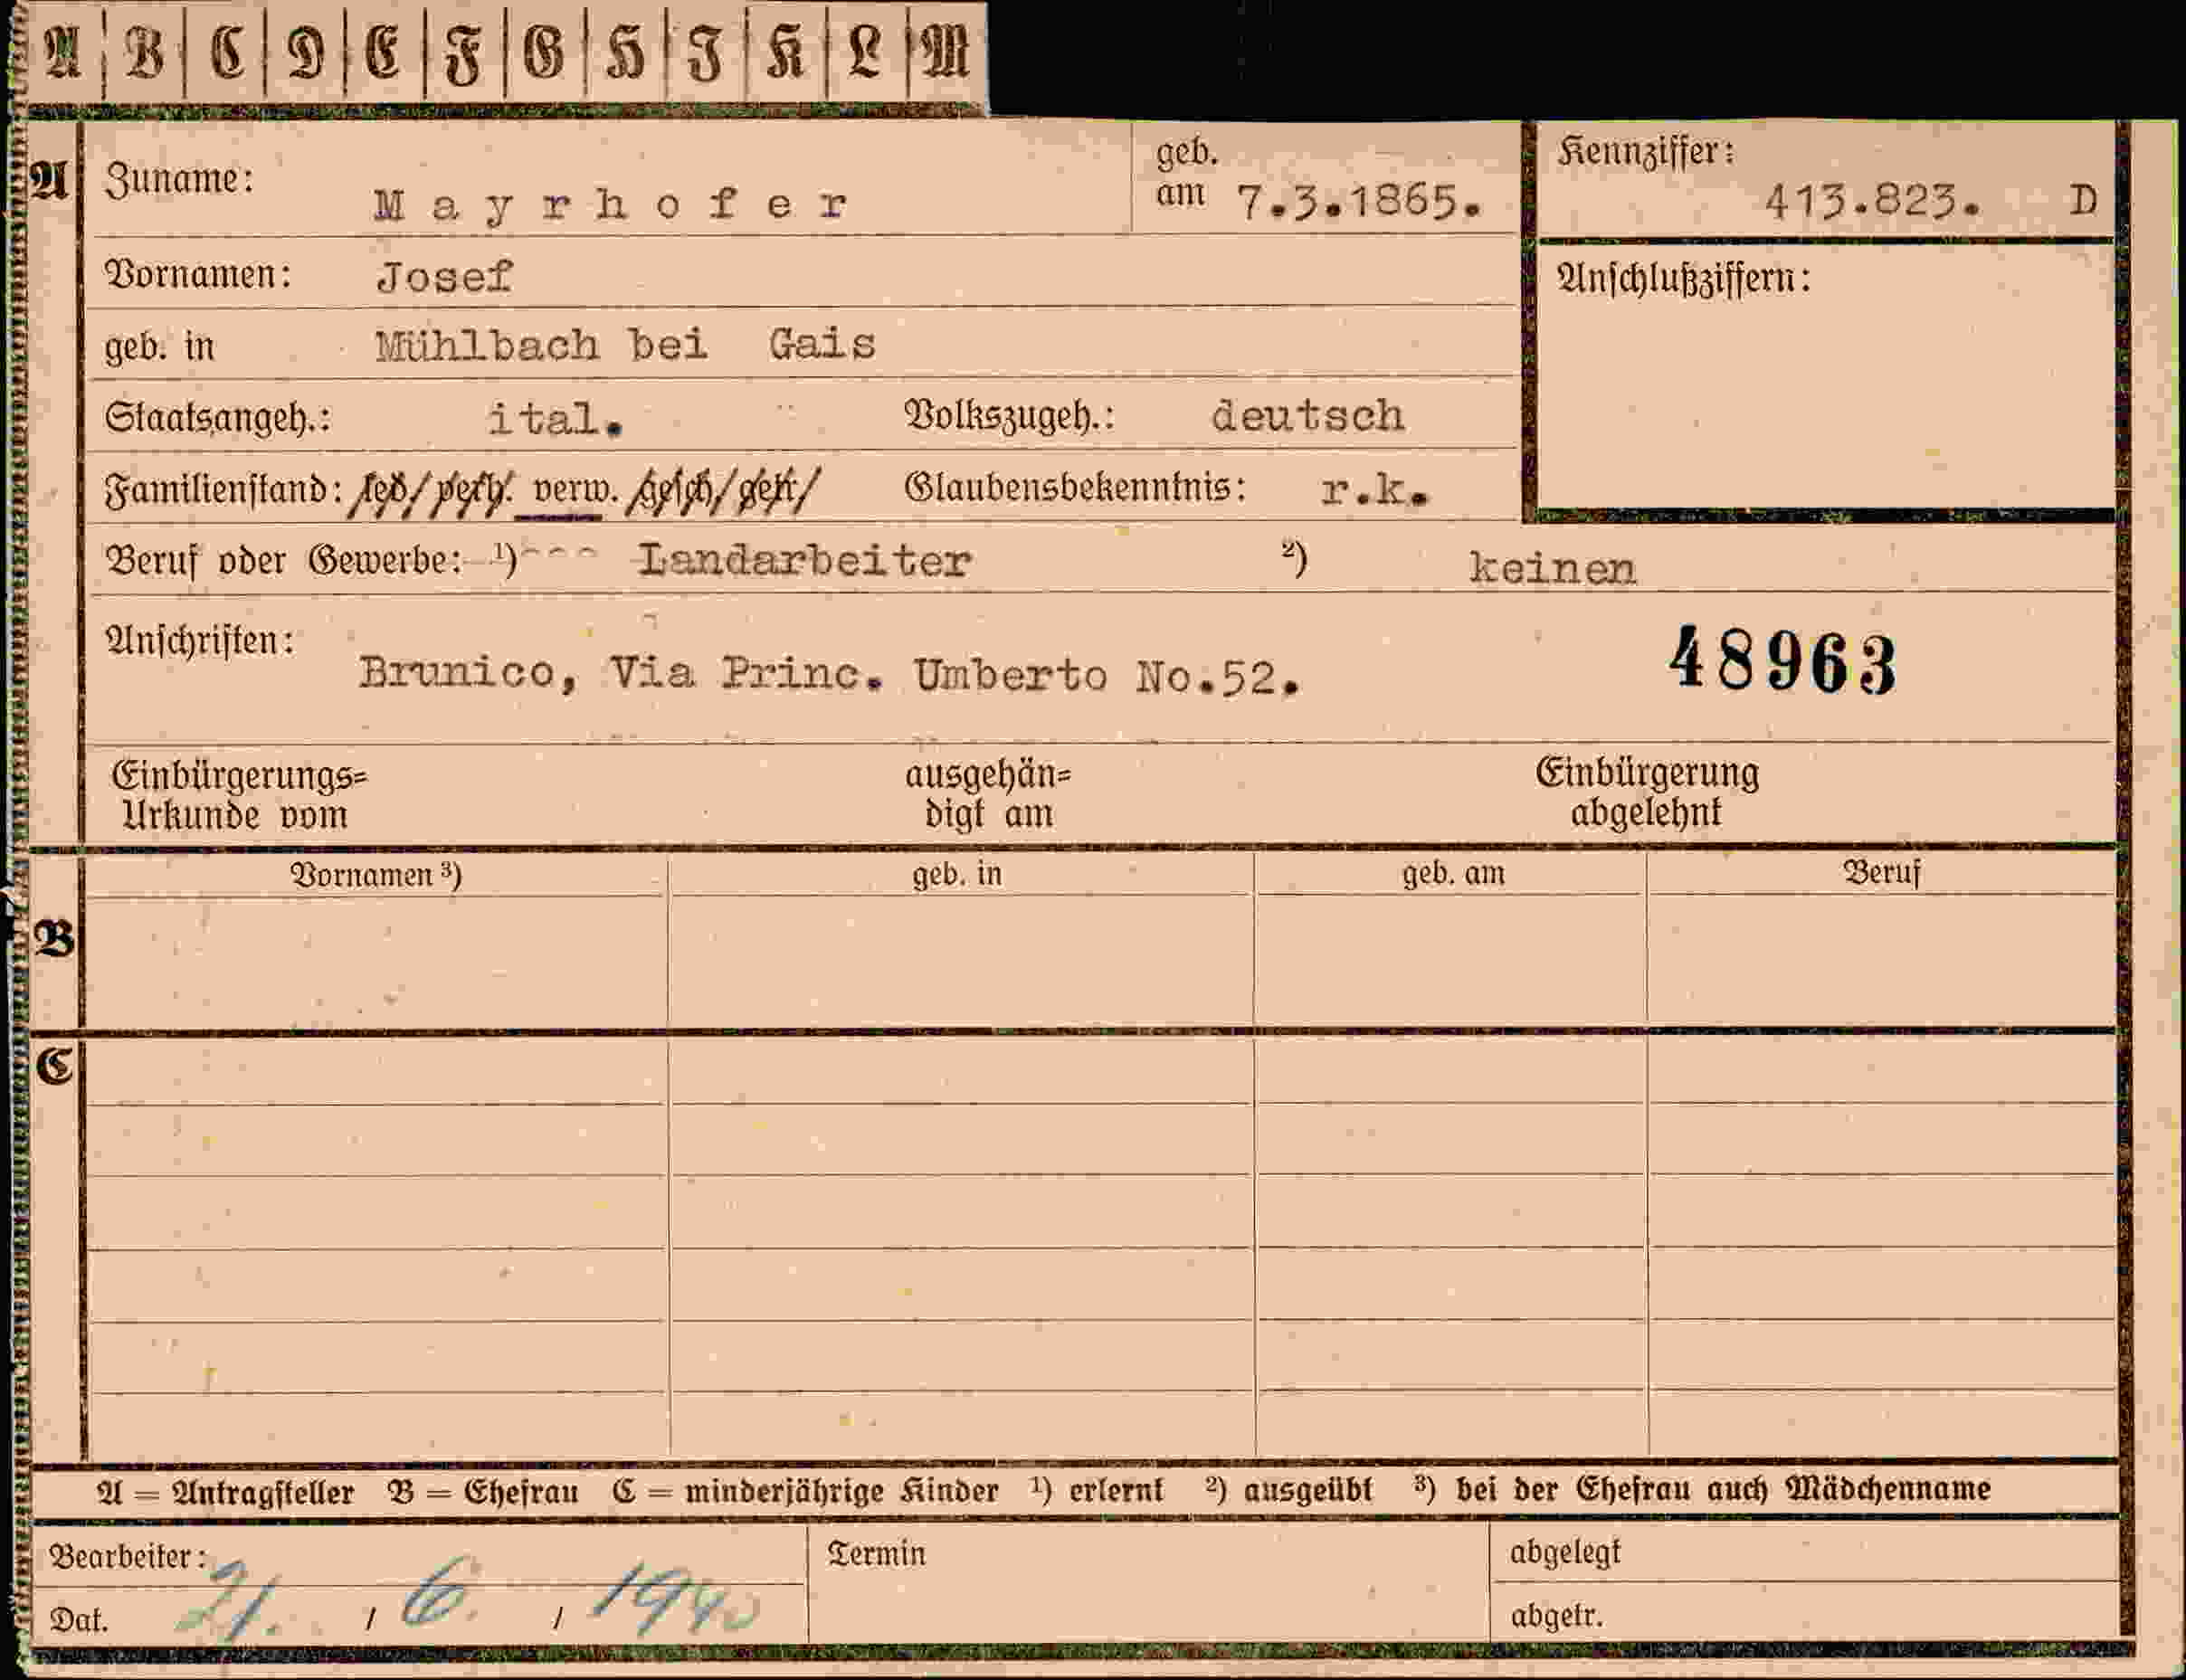 A B C D E F G H I K L M
A Zuname: Mayrhofer geb. am 7.3.1865. Kennziffer: 413.823. D
Vornamen: Josef Anschlußziffern:
geb. in Mühlbach bei Gais
Staatsangeh.: ital. Volkszugeh.: deutsch
Familienstand: led/verh. verw. gesch/getr/ Glaubensbekenntnis: r.k.
Beruf oder Gewerbe: ¹) --- Landarbeiter ²) keinen
Anschriften: Brunico, Via Princ. Umberto No.52. 48963
Einbürgerungs= ausgehän= Einbürgerung
Urkunde vom digt am abgelehnt
Vornamen ³) geb. in geb. am Beruf
B
C
A = Antragsteller B = Ehefrau C = minderjährige Kinder ¹) erlernt ²) ausgeübt ³) bei der Ehefrau auch Mädchenname
Bearbeiter: Termin abgelegt
Dat. 21. / 6. / 1940 abgetr.